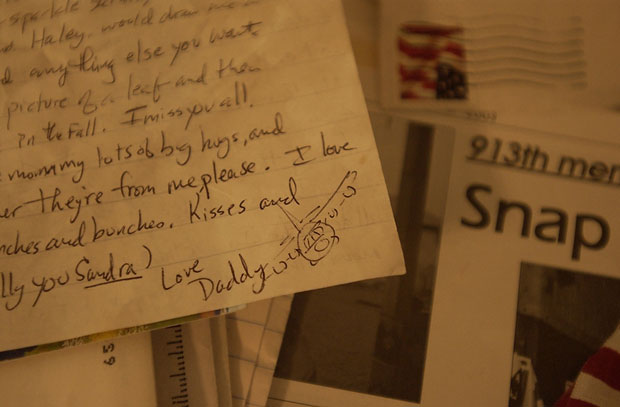 sparkle
Haley. would draw me
anything else you want
picture of a leaf and the
in the Fall. I miss you all.
mommy lots of big hugs, and
they're from me please. I love
bunches. Kisses and
you Sandra)
Love
Daddy
913th
Snap
65